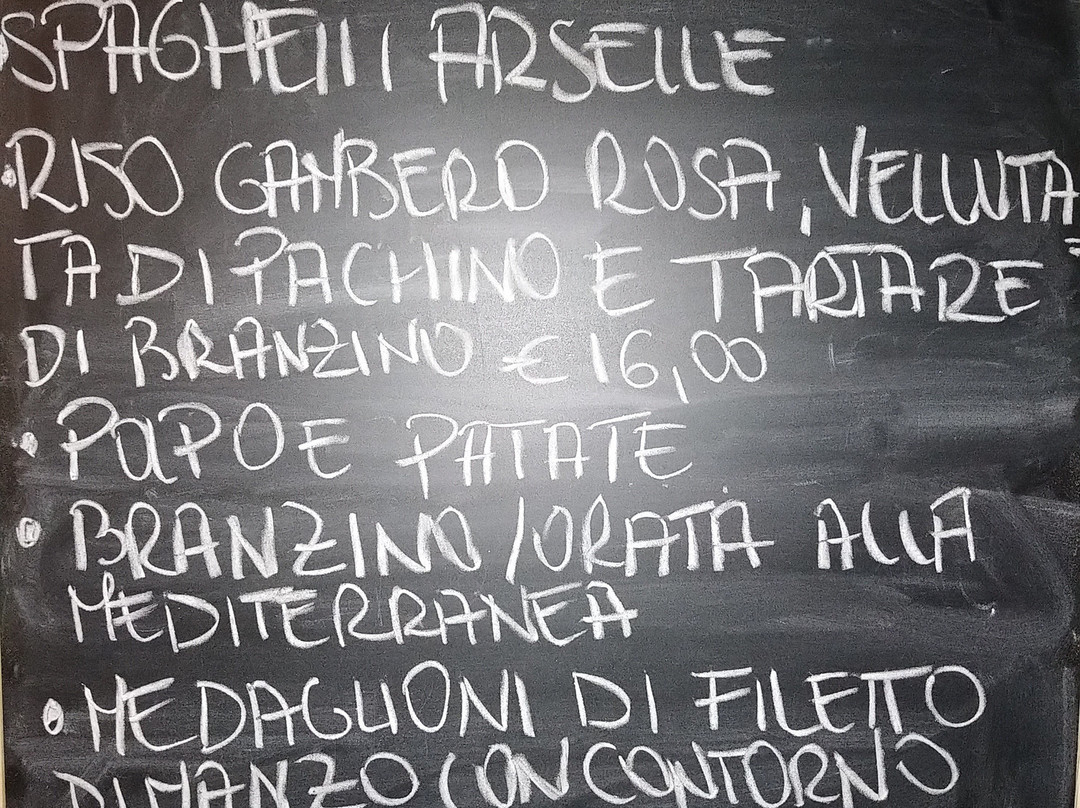 • SPAGHETTI ARSELLE
• RISO GAMBERO ROSA, VELLUTA=
TA DI PACHINO E TARTARE
DI BRANZINO € 16,00
• POLPO E PATATE
• BRANZINO / ORATA ALLA
MEDITERRANEA
• MEDAGLIONI DI FILETTO
DI MANZO CON CONTORNO